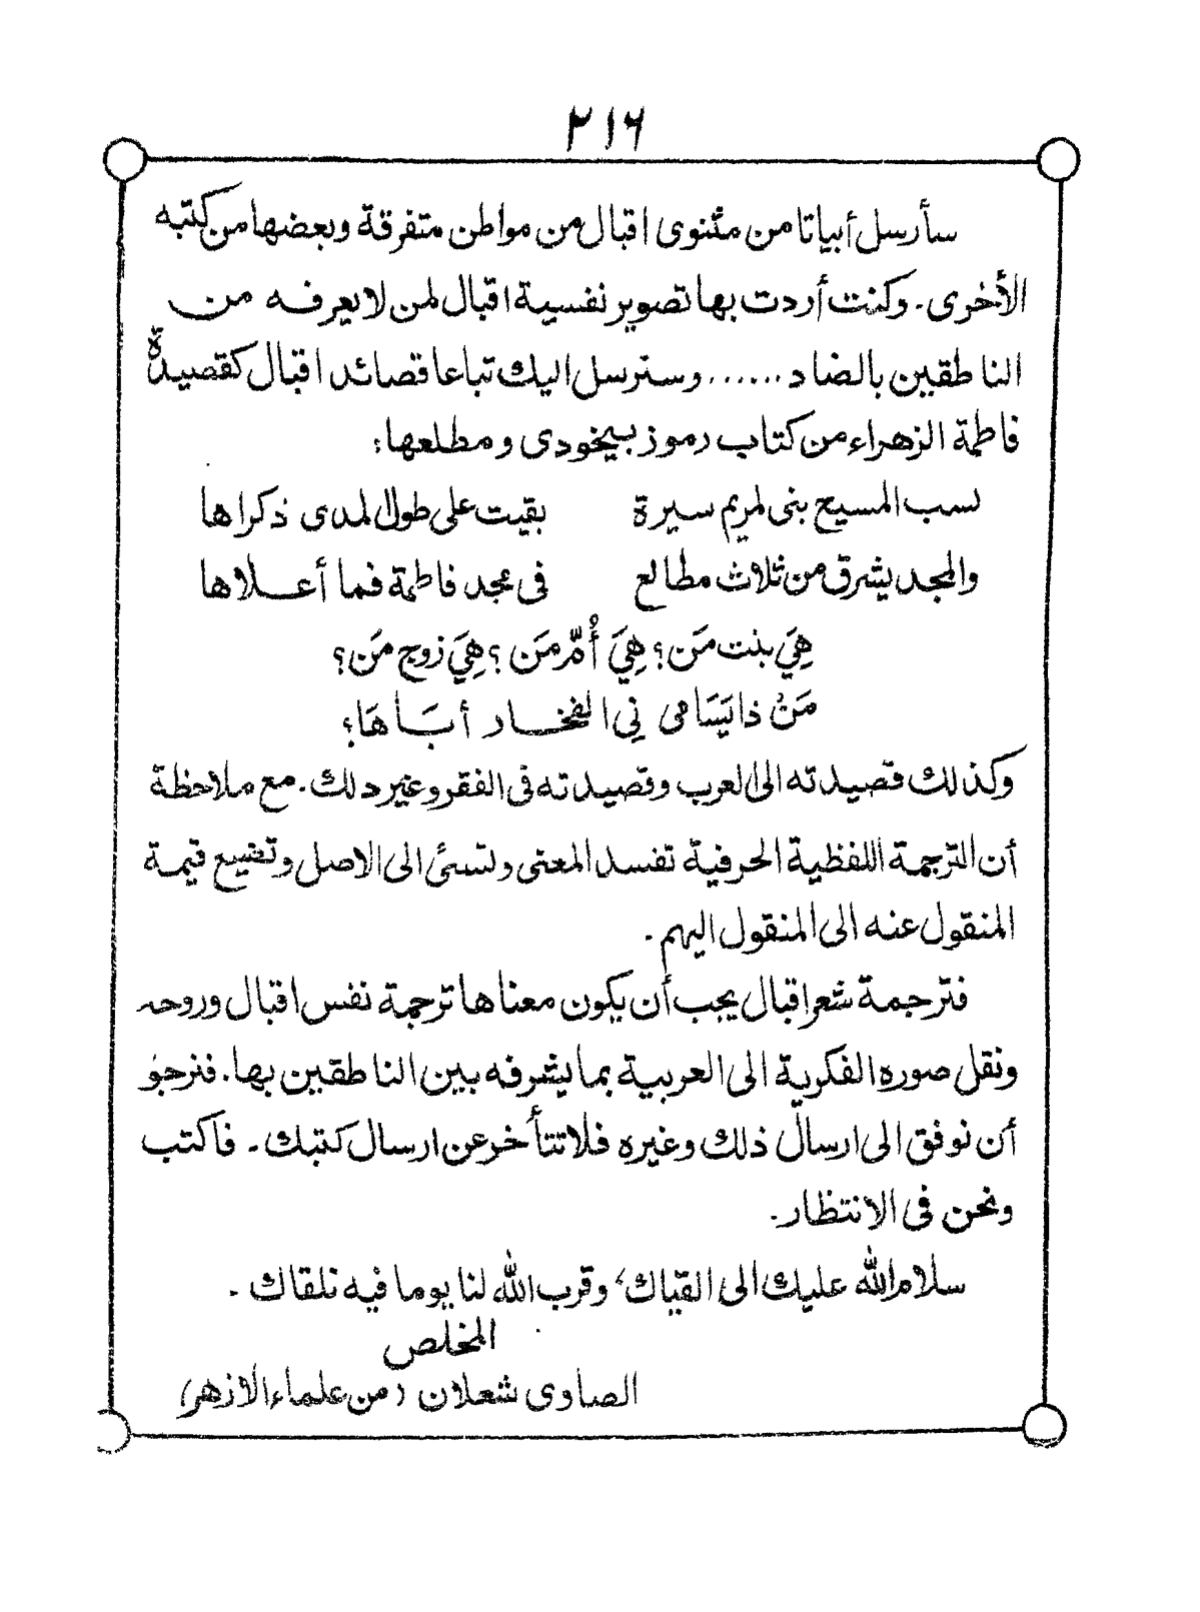 ۲۱۶
سأرسل أبياتا من مثنوى اقبال من مواطن متفرقة وبعضها من كتبه
الأخرى . وكنت أردت بها تصوير نفسية اقبال لمن لا يعرفه من
الناطقين بالضاد ...... وسنرسل اليك تباعا قصائد اقبال كقصيدة
فاطمة الزهراء من كتاب رموز بيخودى ومطلعها :
نسب المسيح بنى لمريم سيرة بقيت على طول المدى ذكراها
والمجد يشرق من ثلاث مطالع فى مجد فاطمة فما أعلاها
هِيَ بنت مَن ؟ هِيَ أُمُّ مَن ؟ هِيَ زوج مَن ؟
مَنْ ذا يَسَامى فِي الفخار أبَاهَا ؟
وكذلك قصيدته الى العرب وقصيدته فى الفقر وغير دلك . مع ملاحظة
أن الترجمة اللفظية الحرفية تفسد المعنى وتسئ الى الاصل وتضيع قيمة
المنقول عنه الى المنقول اليهم .
فترجمة شعر اقبال يجب أن يكون معناها ترجمة نفس اقبال وروحه
ونقل صوره الفكرية الى العربية بما يشرفه بين الناطقين بها . فنرجو
أن نوفق الى ارسال ذلك وغيره فلا تتأخر عن ارسال كتبك . فاكتب
ونحن فى الانتظار .
سلام الله عليك الى القياك ، وقرب الله لنا يوما فيه نلقاك .
المخلص
الصاوى شعلان (من علماء الازهر)